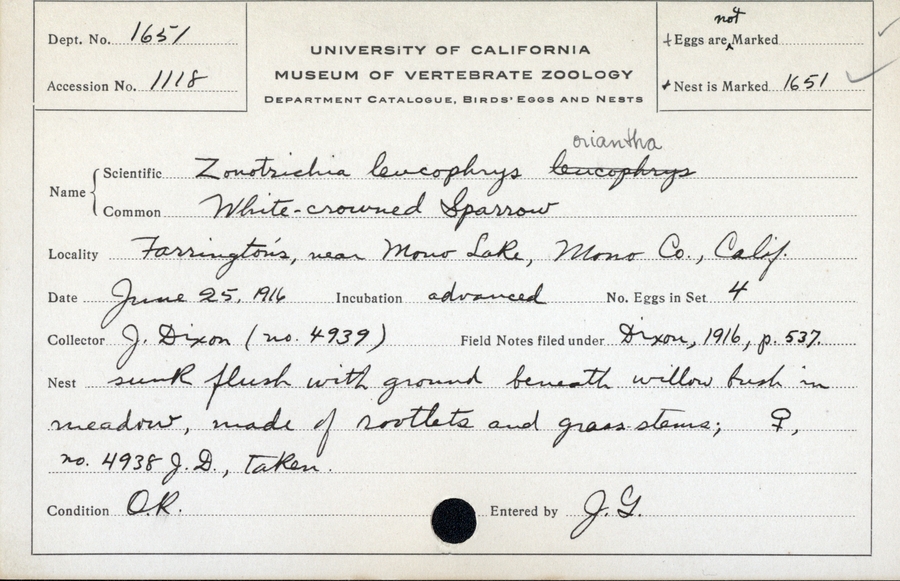 Dept. No. 1651
Accession No. 1118
UNIVERSITY OF CALIFORNIA
MUSEUM OF VERTEBRATE ZOOLOGY
DEPARTMENT CATALOGUE, BIRDS' EGGS AND NESTS
not
Eggs are Marked
Nest is Marked 1651
oriantha
Name
Scientific Zonotrichia leucophrys leucophrys
Common White-crowned Sparrow
Locality Farrington's, near Mono Lake, Mono Co., Calif.
Date June 25, 1916 Incubation advanced No. Eggs in Set 4
Collector J. Dixon (no. 4939) Field Notes filed under Dixon, 1916, p. 537.
Nest sunk flush with ground beneath willow bush in
meadow, made of rootlets and grass-stems; ♀,
no. 4938 J.D., taken.
Condition O.K. Entered by J.G.